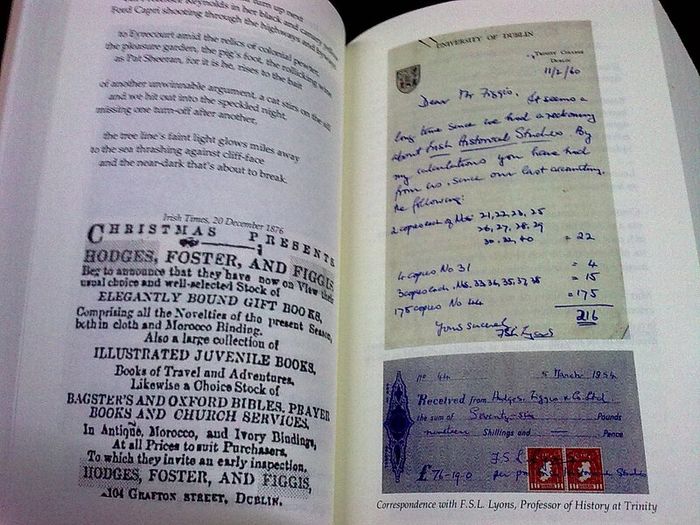 Reynolds in her black and
Ford Capri shooting through the highways and
to Eyrecourt amid the relics of colonial pewter,
the pleasure garden, the pig's foot, the rollicking wine
as Pat Sheeran, for it is he, rises to the bait
of another unwinnable argument, a cat stirs on the sill
and we hit out into the speckled night,
missing one turn-off after another,
the tree line's faint light glows miles away
to the sea thrashing against cliff-face
and the near-dark that's about to break.
Irish Times, 20 December 1876
CHRISTMAS PRESENTS
HODGES, FOSTER, AND FIGGIS
Beg to announce that they have now on View their
usual choice and well-selected Stock of
ELEGANTLY BOUND GIFT BOOKS,
Comprising all the Novelties of the present Season,
both in cloth and Morocco Binding.
Also a large collection of
ILLUSTRATED JUVENILE BOOKS,
Books of Travel and Adventures.
Likewise a Choice Stock of
BAGSTER'S AND OXFORD BIBLES, PRAYER
BOOKS AND CHURCH SERVICES,
In Antique, Morocco, and Ivory Bindings,
At all Prices to suit Purchasers,
To which they invite an early inspection.
HODGES, FOSTER, AND FIGGIS,
104 GRAFTON STREET, DUBLIN.
UNIVERSITY OF DUBLIN
TRINITY COLLEGE
DUBLIN
11/2/60
Dear Mr Figgis, It seems a
long time since we had a reckoning
about Irish Historical Studies. By
my calculations you have had
from us, since our last accounting,
the following:
2 copies each of Nos. 21, 22, 23, 25
26, 27, 28, 29
30, 32, 40 = 22
4 copies No 31 = 4
3 copies each, Nos. 33, 34, 35, 37, 38 = 15
175 copies No 44 = 175
216
Yours sincerely
FSL Lyons
No 44 5 March 1954
Received from Hodges, Figgis & Co. Ltd
the sum of Seventy-six Pounds
nineteen Shillings and — Pence
£76-19-0
Correspondence with F.S.L. Lyons, Professor of History at Trinity